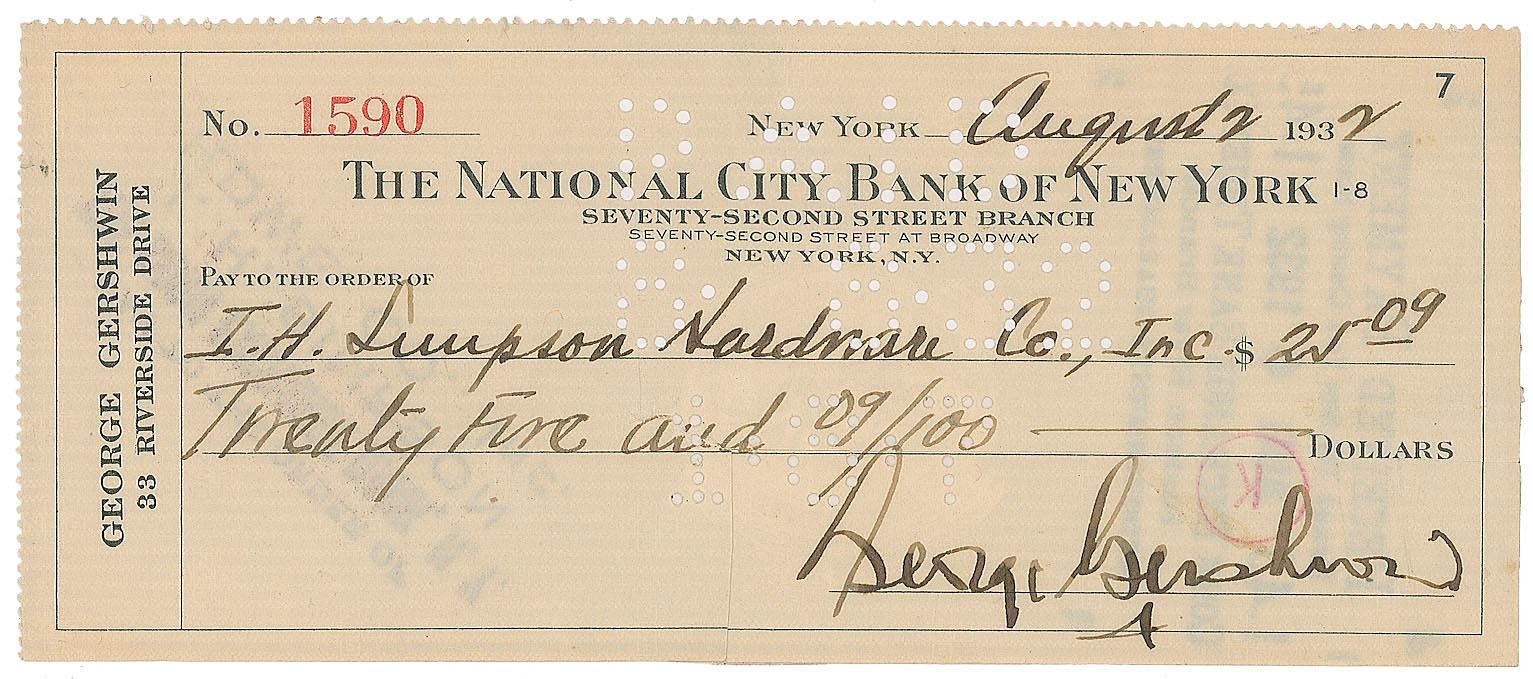 7
No. 1590 New York August 2 1932
THE NATIONAL CITY BANK OF NEW YORK 1-8
SEVENTY-SECOND STREET BRANCH
SEVENTY-SECOND STREET AT BROADWAY
NEW YORK, N.Y.
PAY TO THE ORDER OF
I. H. Simpson Hardware Co., Inc. $ 25 09
Twenty Five and 09/100 DOLLARS
George Gershwin
K
GEORGE GERSHWIN
33 RIVERSIDE DRIVE